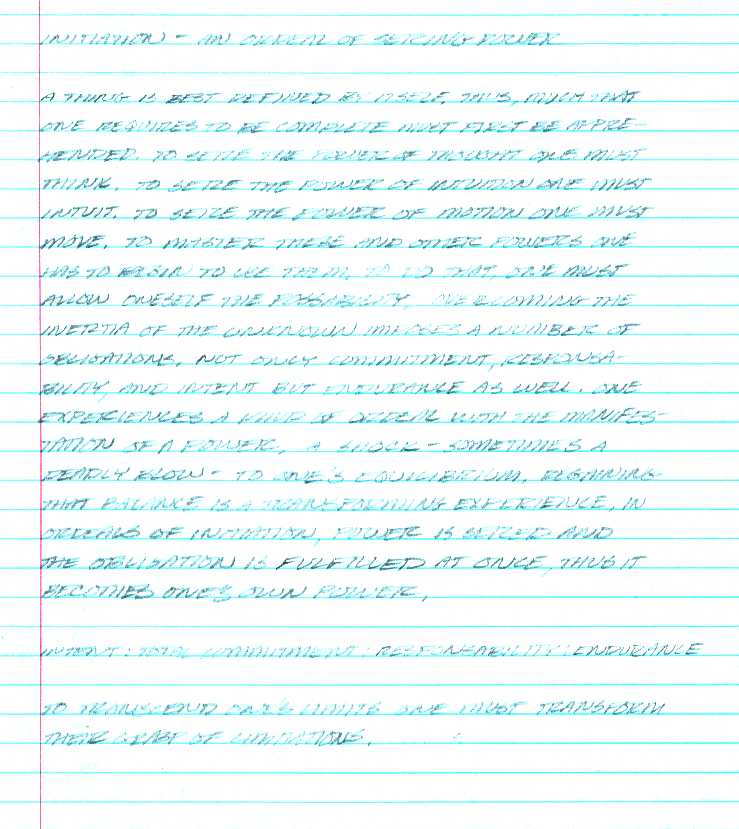 INITIATION - AN ORDEAL OF SEIZING POWER
A THING IS BEST DEFINED BY ITSELF. THUS, MUCH THAT
ONE REQUIRES TO BE COMPLETE MUST FIRST BE APPRE-
HENDED. TO SEIZE THE POWER OF THOUGHT ONE MUST
THINK. TO SEIZE THE POWER OF INTUITION ONE MUST
INTUIT. TO SEIZE THE POWER OF MOTION ONE MUST
MOVE. TO MASTER THESE AND OTHER POWERS ONE
HAS TO BEGIN TO USE THEM. TO DO THAT, ONE MUST
ALLOW ONESELF THE POSSABILITY. OVERCOMING THE
INERTIA OF THE UNKNOWN IMPOSES A NUMBER OF
OBLIGATIONS. NOT ONLY COMMITMENT, RESPONSA-
BILITY, AND INTENT BUT ENDURANCE AS WELL. ONE
EXPERIENCES A KIND OF ORDEAL WITH THE MANIFES-
TATION OF A POWER. A SHOCK - SOMETIMES A
DEADLY BLOW - TO ONE'S EQUILIBRIUM. REGAINING
THAT BALANCE IS A TRANSFORMING EXPERIENCE. IN
ORDEALS OF INITIATION, POWER IS SEIZED AND
THE OBLIGATION IS FULFILLED AT ONCE, THUS IT
BECOMES ONE'S OWN POWER.
INTENT : TOTAL COMMITMENT : RESPONSABILITY : ENDURANCE
TO TRANSCEND ONE'S LIMITS ONE MUST TRANSFORM
THEIR GRASP OF LIMITATIONS.